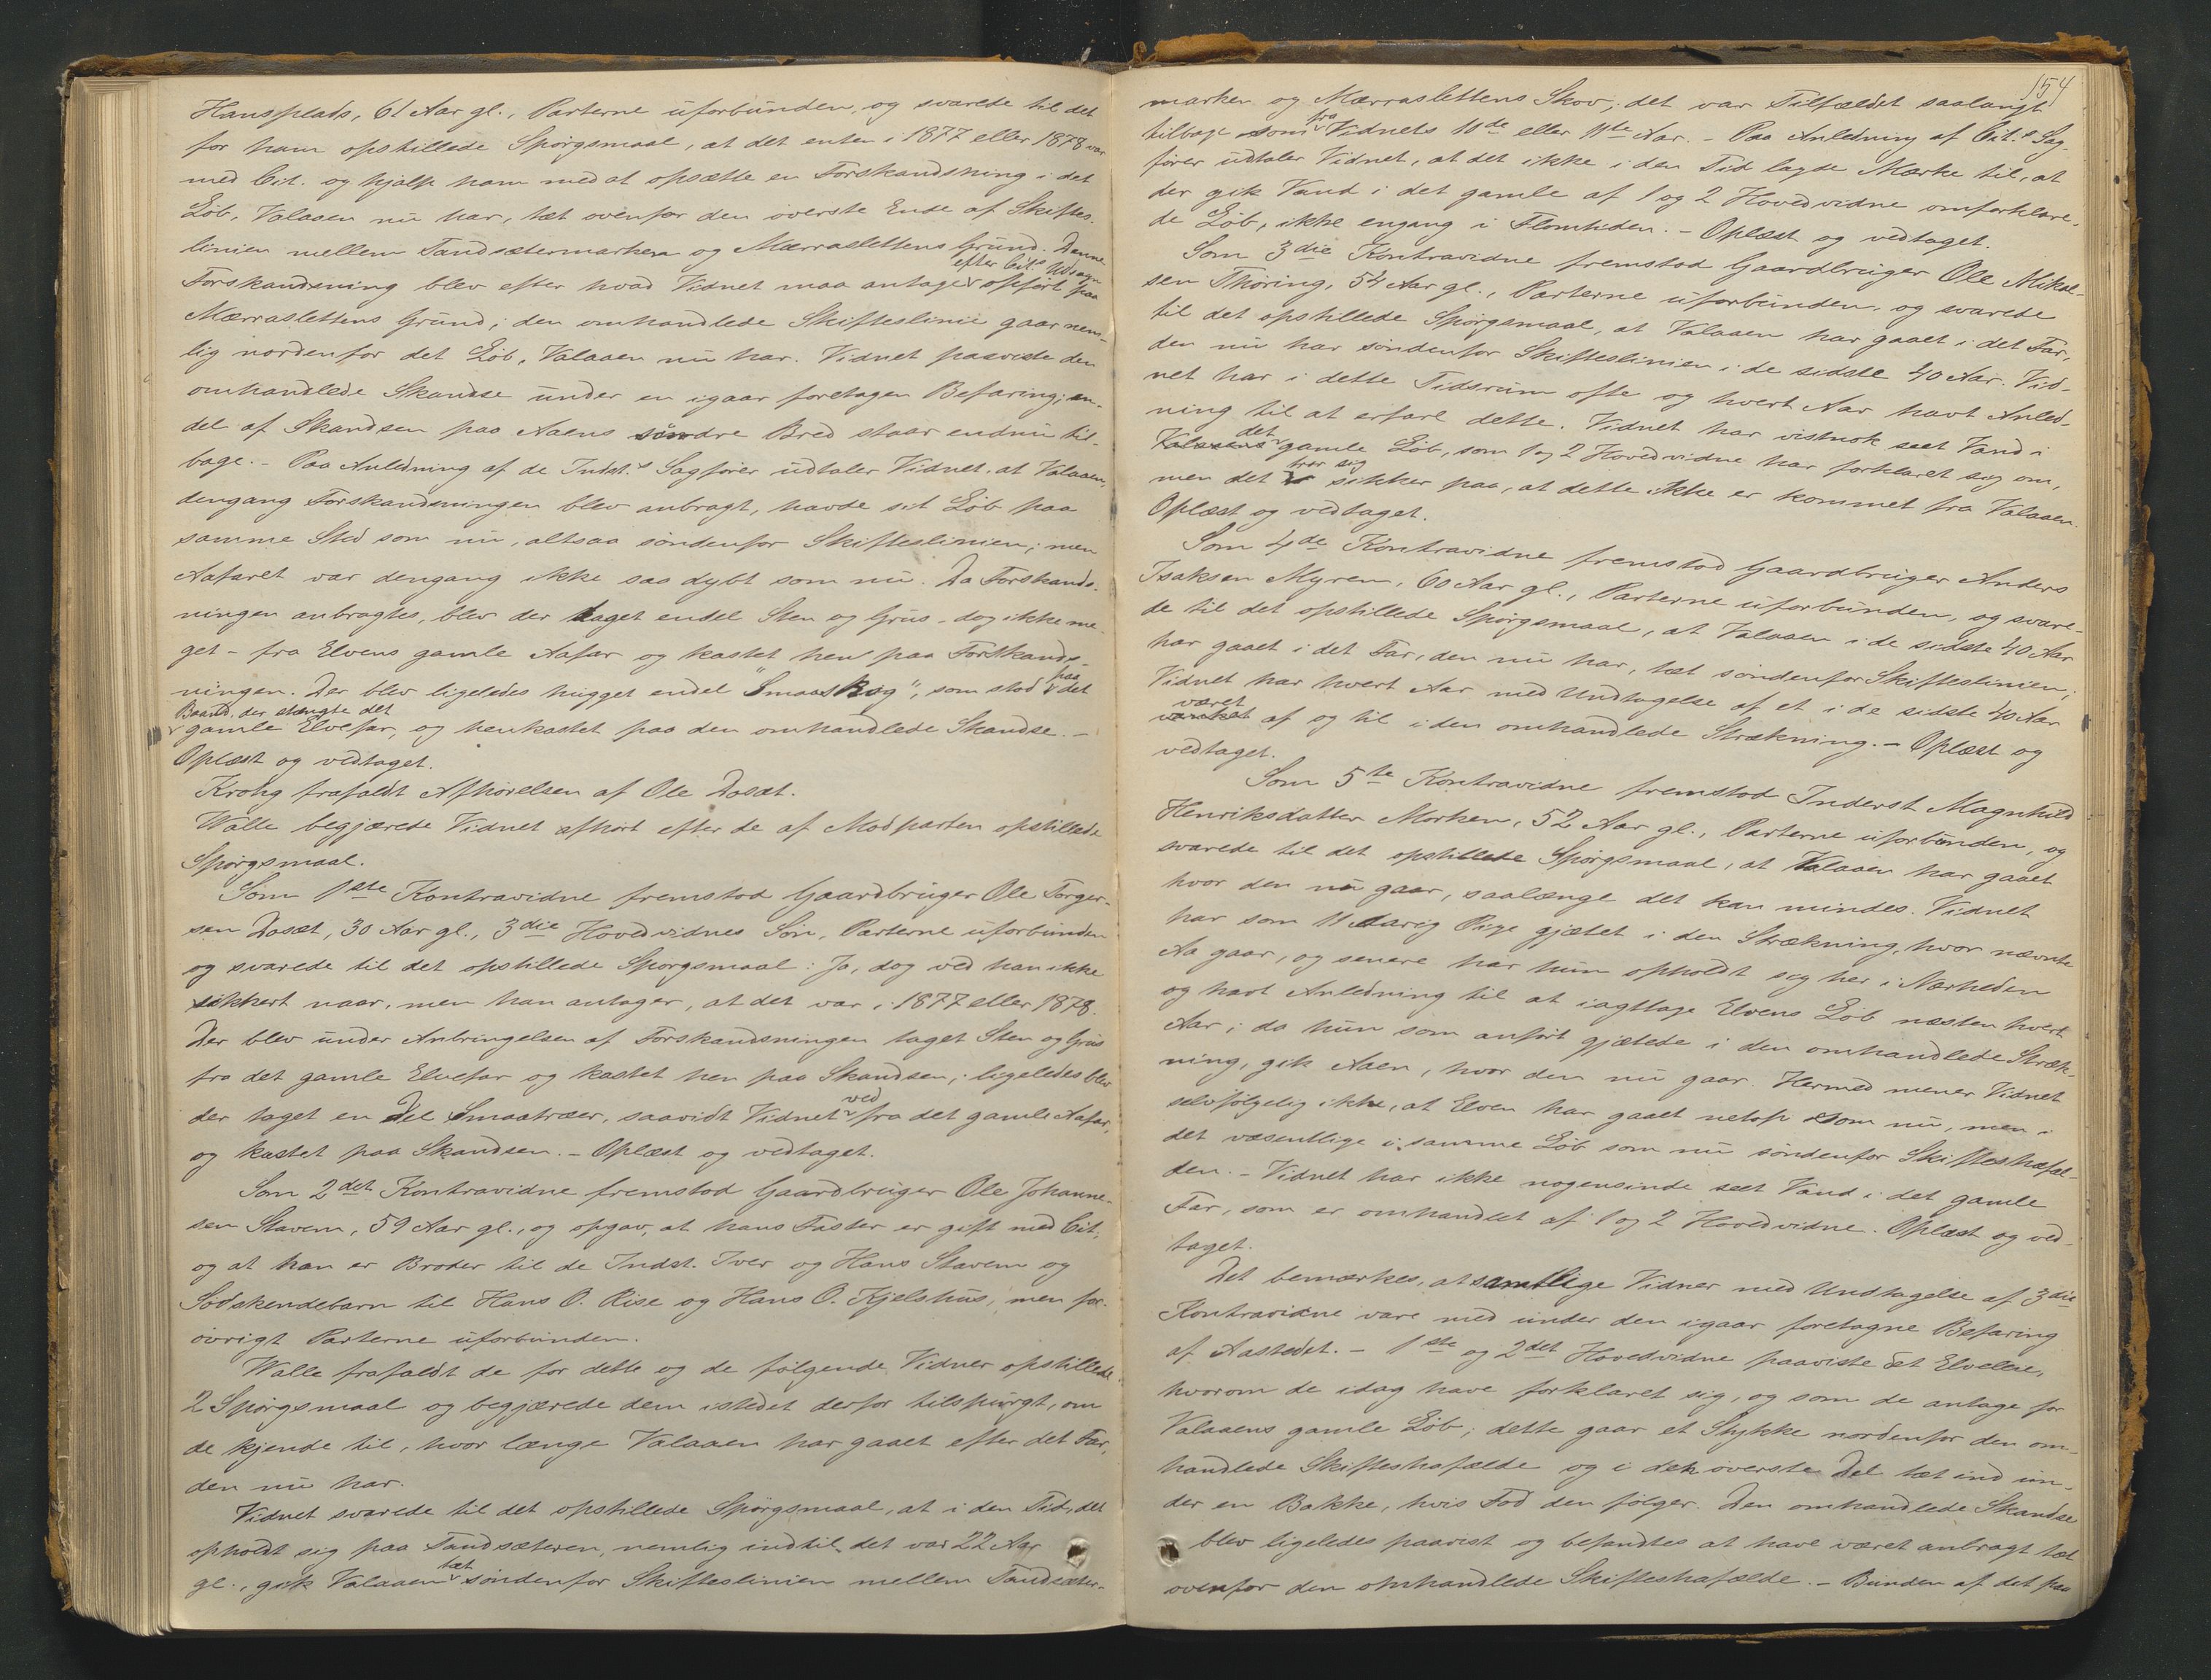 Hansplads, 61 Aar gl., Parterne uforbunden, og svarede til det
for ham opstillede Spørgsmaal, at det enten i 1877 eller 1878 var
med Cit. og hjalp ham med at opsætte en Forskandsning i det
Løb, Valaaen nu har, tæt ovenfor den øverste Ende af Skiftes-
linien mellem Tandsætermarken og Mærraslettens Grund. Denne
Forskandsning blev efter hvad Vidnet maa antage efter Cit.s Udsagn opført paa
Mærraslettens Grund; den omhandlede Skifteslinie gaar nem-
lig nordenfor det Løb, Valaaen nu har. Vidnet paaviste den
omhandlede Skandse under en igaar foretagen Befaring; en-
del af Skandsen paa Aaens søndre Bred staar endnu til-
bage. - Paa Anledning af de Indst.s Sagfører udtaler Vidnet, at Valaaen,
dengang Forskandsningen blev anbragt, havde sit Løb paa
samme Sted som nu, altsaa søndenfor Skifteslinien; men
Aafaret var dengang ikke saa dybt som nu. Da Forskands-
ningen anbragtes, blev der taget endel Sten og Grus - dog ikke me-
get - fra Elvens gamle Aafar og kastet hen paa Forskands-
ningen. Der blev ligeledes hugget endel "Smaaskog", som stod paa det
Baand, der stængte det
gamle Elvefar, og henkastet paa den omhandlede Skandse. -
Oplæst og vedtaget.
Krohg frafaldt Afhørelsen af Ole Dosæt.
Walle begjærede Vidnet afhørt efter de af Modparten opstillede
Spørgsmaal.
Som 1ste Kontravidne fremstod Gaardbruger Ole Torger-
sen Dosæt, 30 Aar gl., 3die Hovedvidnes Søn, Parterne uforbunden
og svarede til det opstillede Spørgsmaal: Ja, dog ved han ikke
sikkert naar, men han antager, at det var i 1877 eller 1878.
Der blev under Anbringelsen af Forskandsningen taget Sten og Grus
fra det gamle Elvefar og kastet hen paa Skandsen; ligeledes blev
der taget en Del Smaatræer, saavidt Vidnet ved fra det gamle Aafar,
og kastet paa Skandsen. - Oplæst og vedtaget.
Som 2det Kontravidne fremstod Gaardbruger Ole Johanne-
sen Stavem, 59 Aar gl., og opgav, at hans Faster er gift med Cit.,
og at han er Broder til de Indst. Iver og Hans Stavem og
Sødskendebarn til Hans O. Rise og Hans O. Kjelshus, men for-
øvrigt Parterne uforbunden.
Walle frafaldt de for dette og de følgende Vidner opstillede
2 Spørgsmaal og begjærede dem istedet derfor tilspurgt, om
de kjende til, hvor længe Valaaen har gaaet efter det Far,
den nu har.
Vidnet svarede til det opstillede Spørgsmaal, at i den Tid, det
opholdt sig paa Tandsæteren, nemlig indtil det var 22 Aar
gl., gik Valaaen tæt søndenfor Skifteslinien mellem Tandsæter-
154
marken og Mærraslettens Skov; det var Tilfældet saalangt
tilbage som fra Vidnets 10de eller 11te Aar. - Paa Anledning af Cit.s Sag-
fører udtaler Vidnet, at det ikke i den Tid lagde Mærke til, at
der gik Vand i det gamle af 1 og 2 Hovedvidne omforklare-
de Løb, ikke engang i Flomtiden. - Oplæst og vedtaget.
Som 3die Kontravidne fremstod Gaardbruger Ole Mikal-
sen Thøring, 54 Aar gl., Parterne uforbunden, og svarede
til det opstillede Spørgsmaal, at Valaaen har gaaet i det Far,
den nu har søndenfor Skifteslinien i de sidste 40 Aar. Vid-
net har i dette Tidsrum ofte og hvert Aar havt Anled-
ning til at erfare dette. Vidnet har vistnok seet Vand i
Valaaens det gamle Løb, som 1 og 2 Hovedvidne har forklaret sig om,
men det tror sig sikker paa, at dette ikke er kommet fra Valaaen.
Oplæst og vedtaget.
Som 4de Kontravidne fremstod Gaardbruger Anders
Isaksen Myren, 60 Aar gl., Parterne uforbunden, og svare-
de til det opstillede Spørgsmaal, at Valaaen i de sidste 40 Aar
har gaaet i det Far, den nu har, tæt søndenfor Skifteslinien;
Vidnet har hvert Aar med Undtagelse af et i de sidste 40 Aar
været af og til i den omhandlede Strækning. - Oplæst og
vedtaget.
Som 5te Kontravidne fremstod Inderst Magnhild
Henriksdatter Morken, 52 Aar gl., Parterne uforbunden, og
svarede til det opstillede Spørgsmaal, at Valaaen har gaaet
hvor den nu gaar, saalænge det kan mindes. Vidnet
har som 11 Aarig Pige gjætet i den Strækning, hvor nævnte
Aa gaar, og senere har hun opholdt sig her i Nærheden
og havt Anledning til at iagttage Elvens Løb næsten hvert
Aar; da hun som anført gjætede i den omhandlede Stræk-
ning, gik Aaen, hvor den nu gaar. Hermed mener Vidnet
selvfølgelig ikke, at Elven har gaaet netop som nu, men i
det væsentlige i samme Løb som nu søndenfor Skifteshafæl-
den. - Vidnet har ikke nogensinde seet Vand i det gamle
Far, som er omhandlet af 1 og 2 Hovedvidne. Oplæst og ved-
taget.
Det bemærkes, at samtlige Vidner med Undtagelse af 3die
Kontravidne vare med under den igaar foretagne Befaring
af Aastedet. - 1ste og 2det Hovedvidne paaviste det Elveleie,
hvorom de idag have forklaret sig, og som de antage for
Valaaens gamle Løb; dette gaar et Stykke nordenfor den om-
handlede Skifteshafælde og i den øverste Del tæt ind un-
der en Bakke, hvis Fod den følger. Den omhandlede Skandse
blev ligeledes paavist og befandtes at have været anbragt tæt
ovenfor den omhandlede Skifteshafælde. - Bunden af det paa